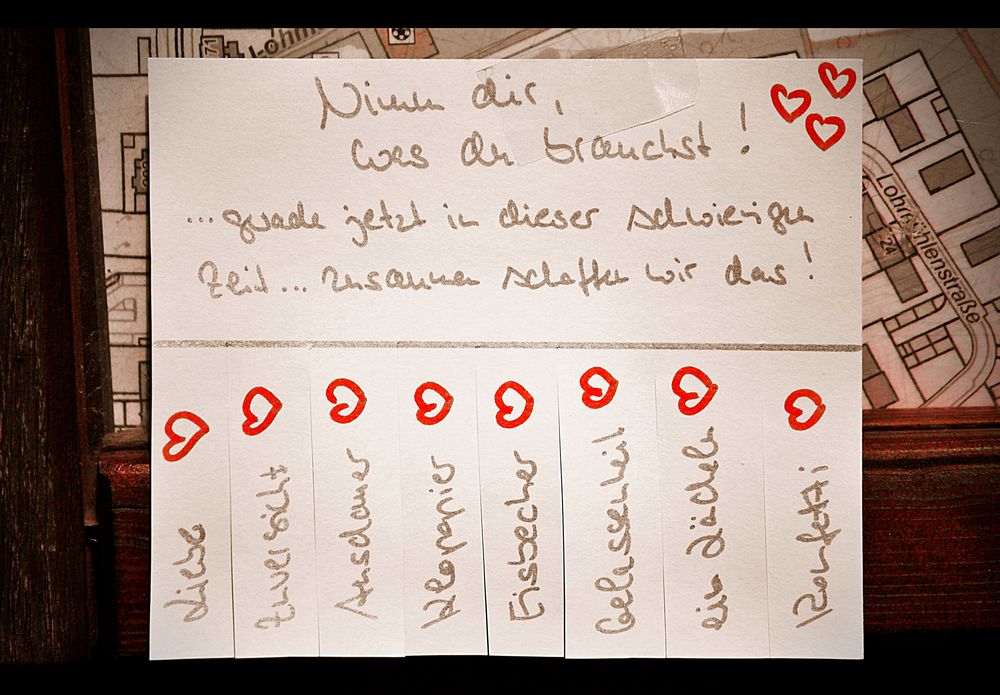 Nimm dir,
was du brauchst!
...gerade jetzt in dieser schwierigen
Zeit... zusammen schaffen wir das!
Liebe
Zuversicht
Ausdauer
Klopapier
Eisbecher
Gelassenheit
ein Lächeln
Konfetti
71
Lohm
Lohmühlenstraße
24